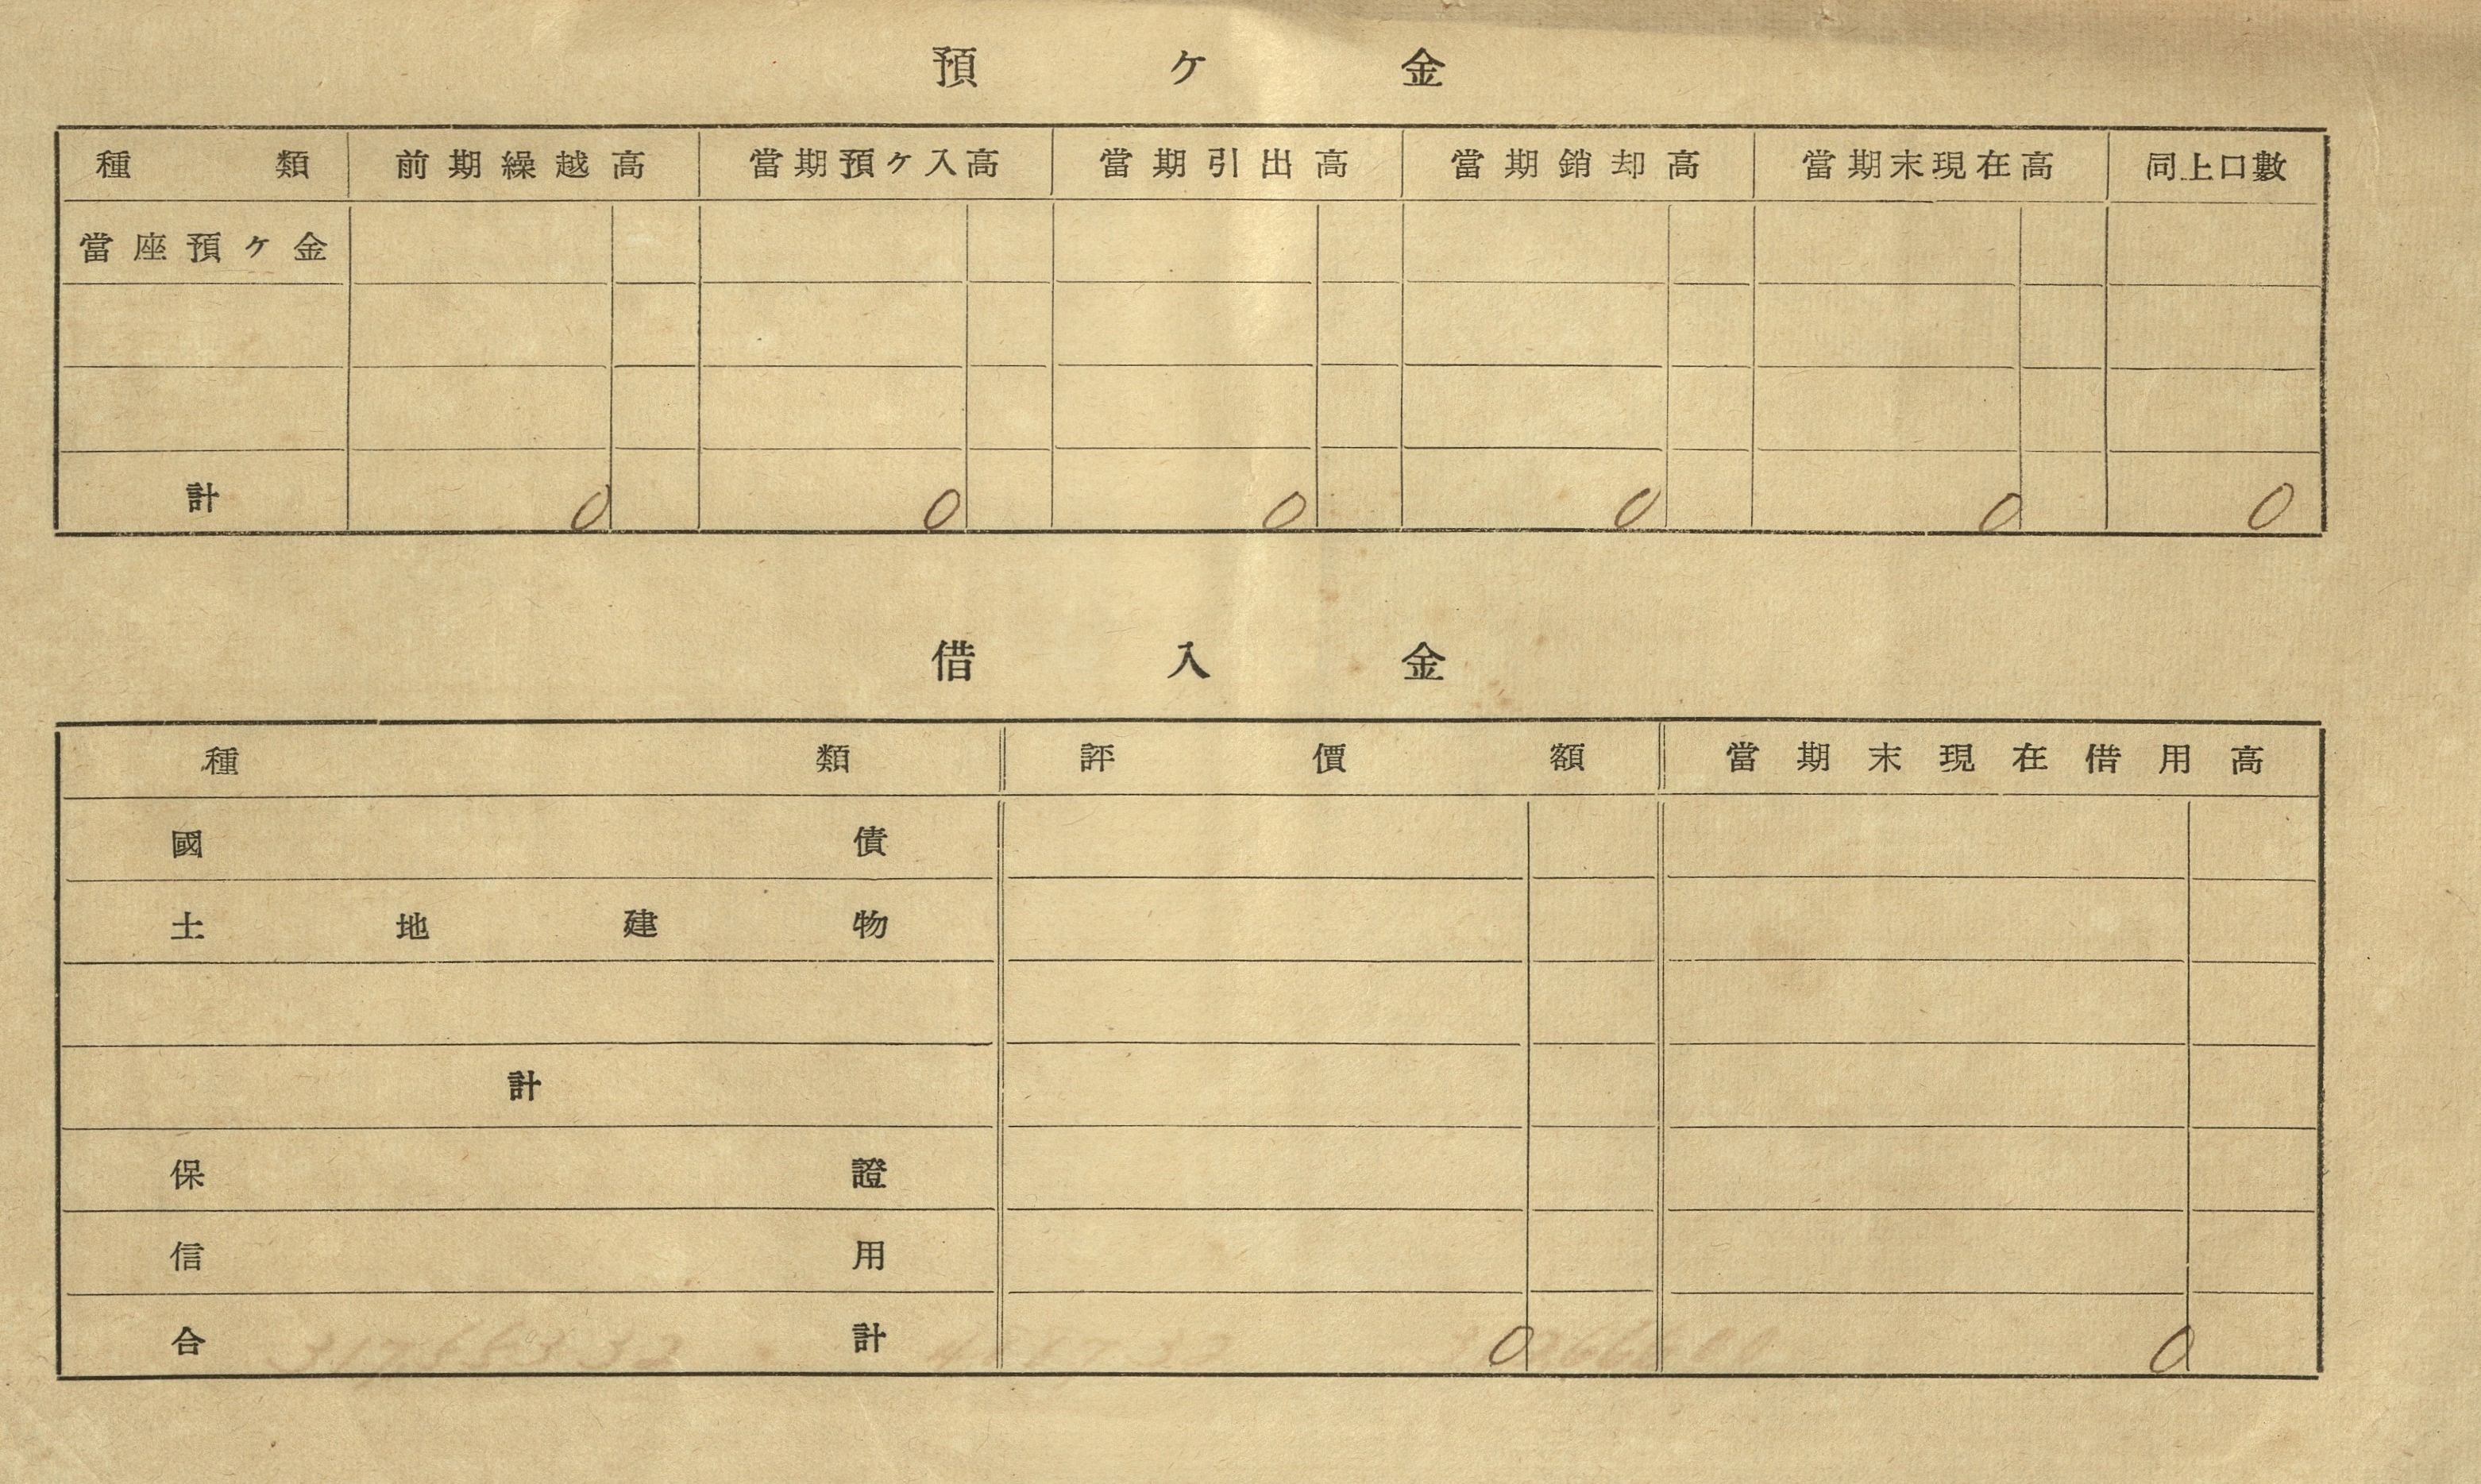 預ケ金
種類 前期繰越高 當期預ケ入高 當期引出高 當期銷却高 當期末現在高 同上口數
當座預ケ金
計 0 0 0 0 0 0
借入金
種類 評價額 當期末現在借用高
國債
土地建物
計
保證
信用
合計 0 0